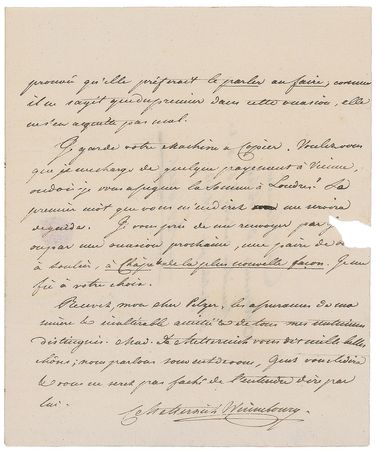 prouvé qu'elle préférait le parler au faire; comme
il ne s'agit que du premier dans cette occasion, elle
ne s'en acquitte pas mal.
Je garde votre Machine à Copier. Voulez vous
que je me charge de quelque payement à Vienne,
ou dois-je vous assigner la Somme à Londres? Le
premier mot que vous m'en direz me servira
de guide. Je vous prie de me renvoyer par
ou par une occasion prochaine, une paire de
à soulier, à Chape de la plus nouvelle façon. Je me
fie à votre choix.
Recevez, mon cher les assurances de ma
sincère et inaltérable amitié et de tous mes sentimens
distingués. Mad. de Metternich vous dit mille belles
choses; nous parlons souvent de vous, je vous le dire
et vous ne serez pas faché de l'entendre dire par
lui.
C. Metternich Winnebourg.